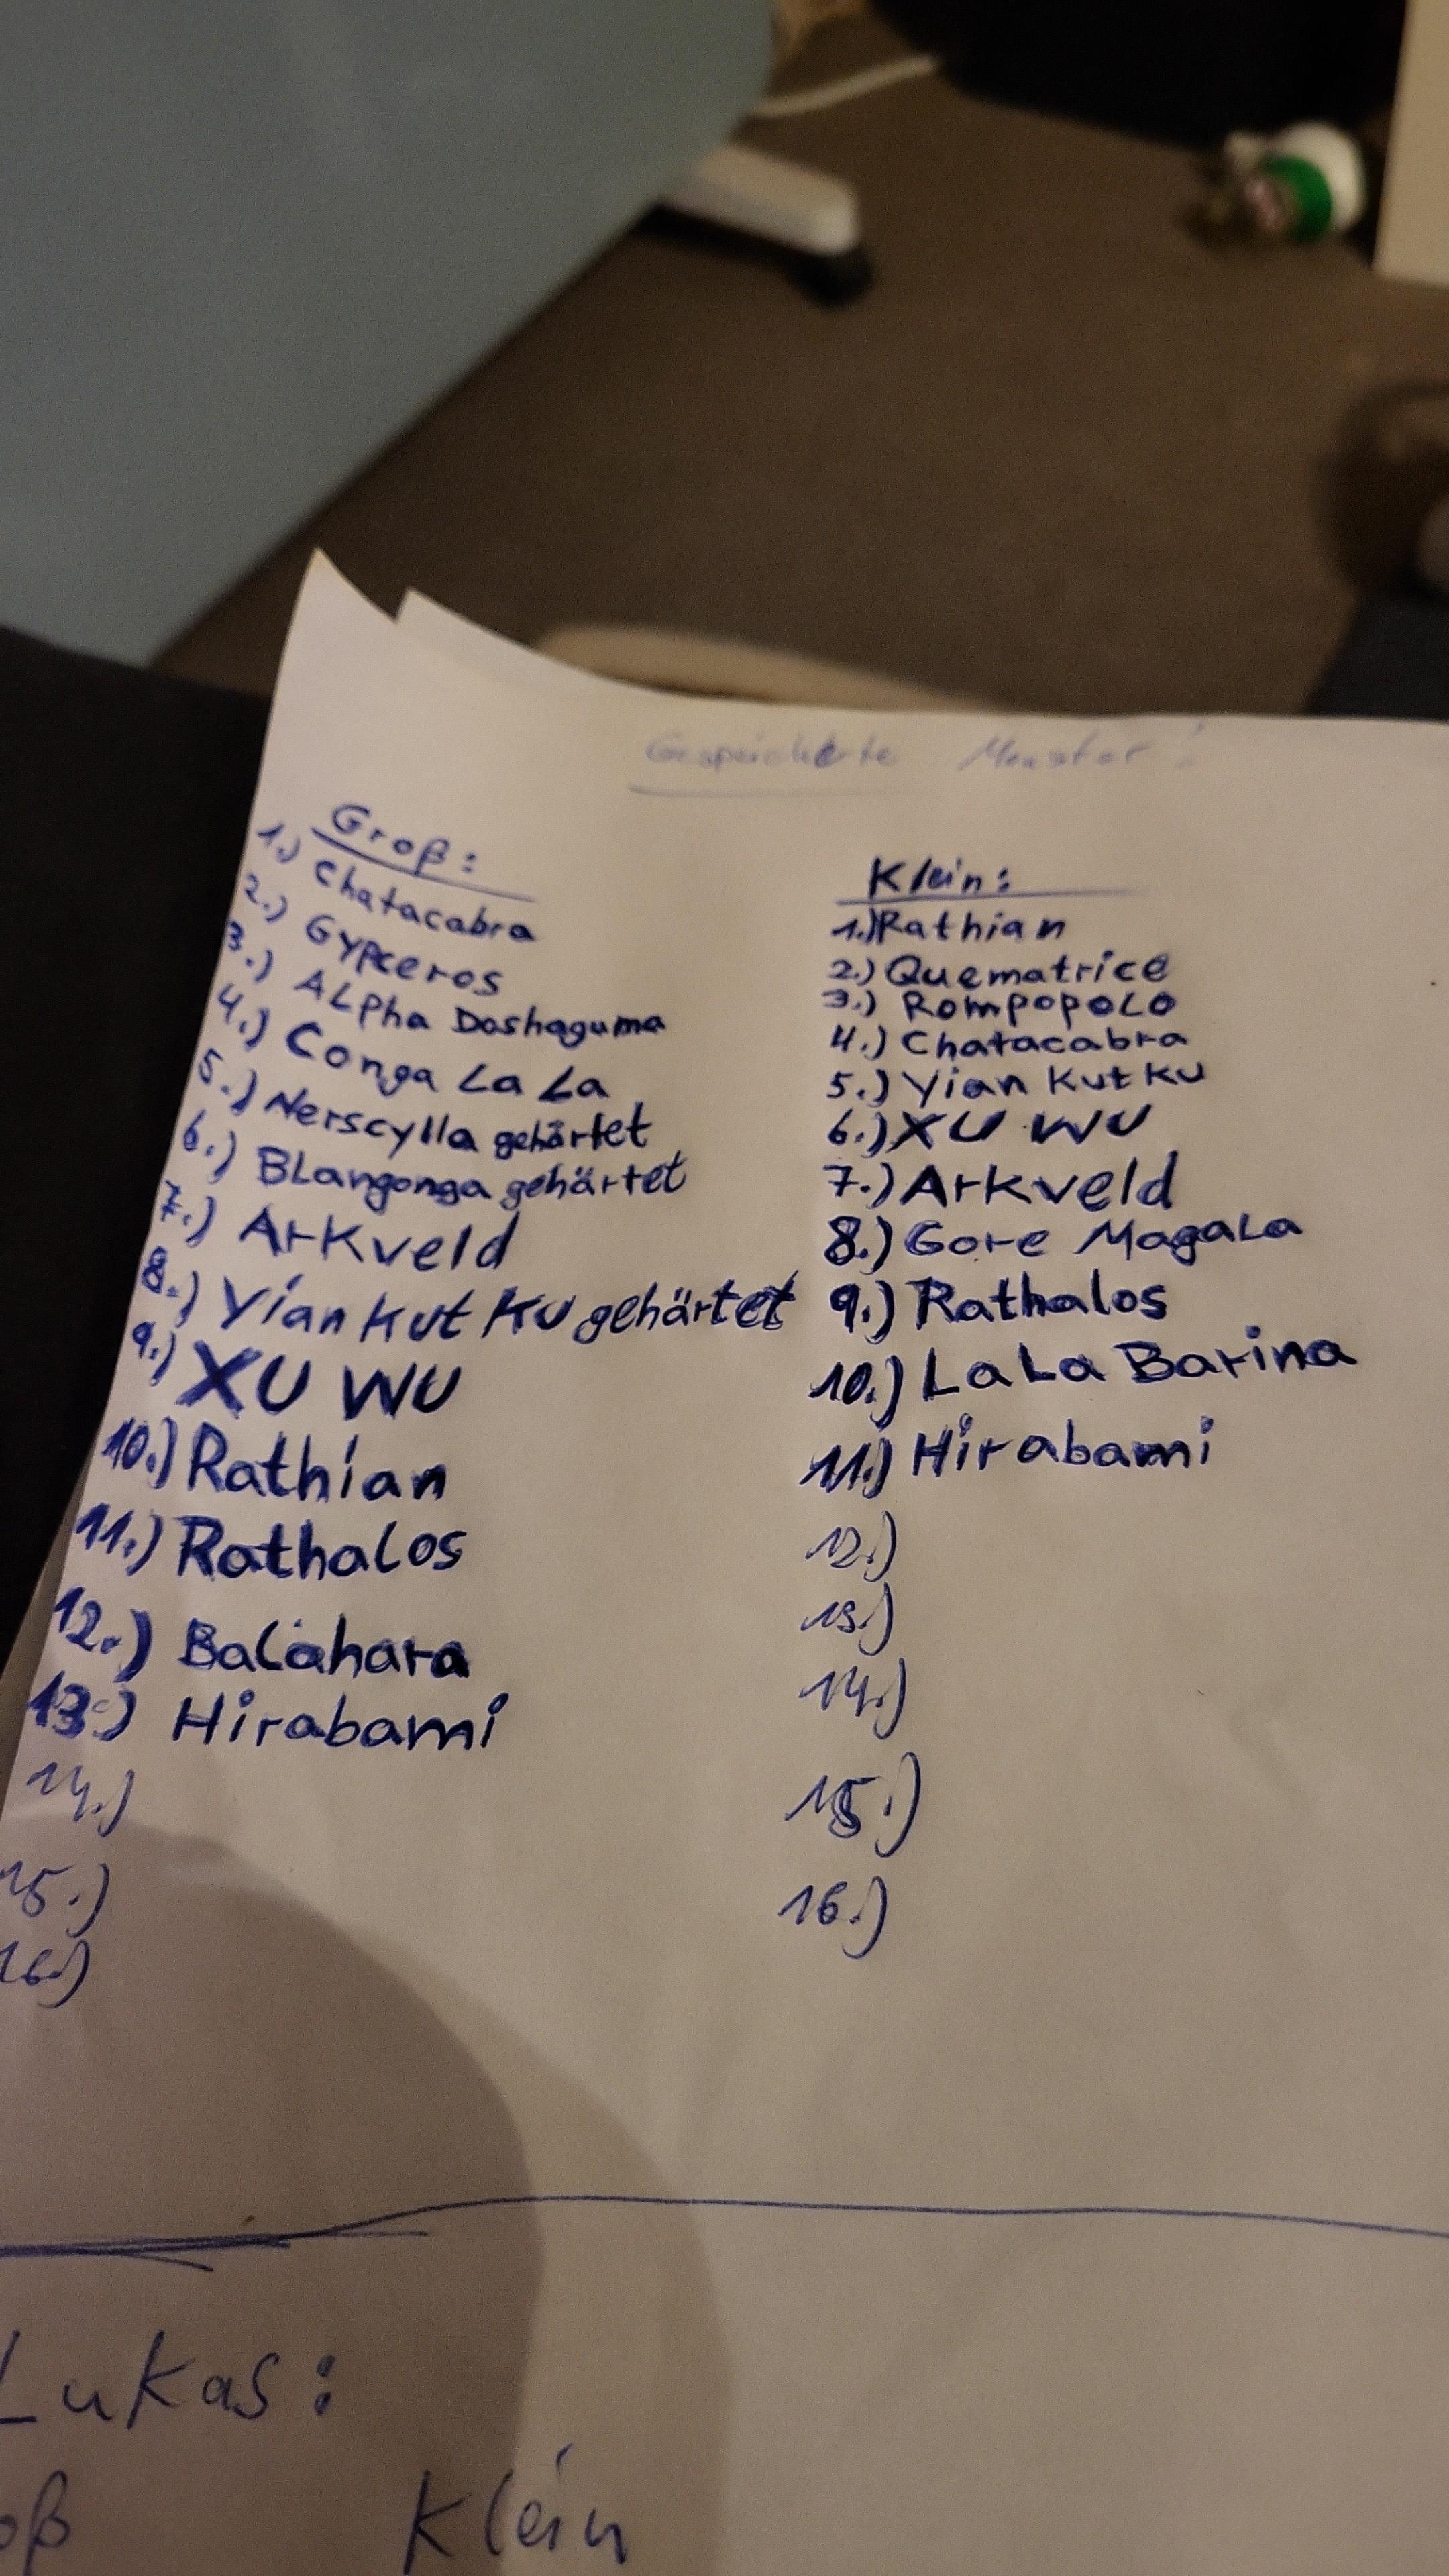 Gespeicherte Monster:
Groß:
1.) Chatacabra
2.) Gypceros
3.) ALPha Doshaguma
4.) Conga La La
5.) Nerscylla gehärtet
6.) BLangonga gehärtet
7.) ArKveld
8.) Yian Kut Ku gehärtet
9.) XU WU
10.) Rathian
11.) Rathalos
12.) Balahara
13.) Hirabami
14.)
15.)
16.)
Klein:
1.) Rathian
2.) Quematrice
3.) ROMPOPOLO
4.) Chatacabra
5.) Yian Kut Ku
6.) XU WU
7.) Arkveld
8.) Gore MagaLa
9.) Rathalos
10.) LaLa Barina
11.) Hirabami
12.)
13.)
14.)
15.)
16.)
Lukas:
oß Klein